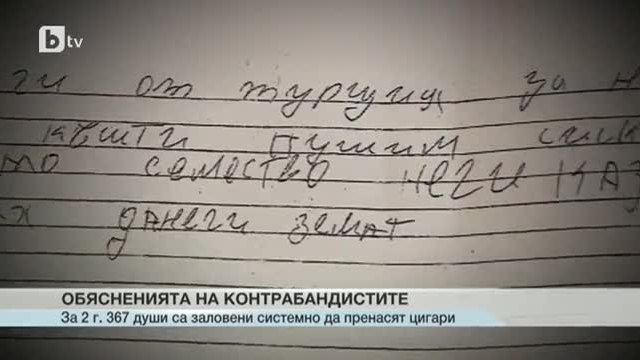 btv
ги от турция за н
къшти пушим сик
то семество неги каз
х данеги земат
ОБЯСНЕНИЯТА НА КОНТРАБАНДИСТИТЕ
За 2 г. 367 души са заловени системно да пренасят цигари